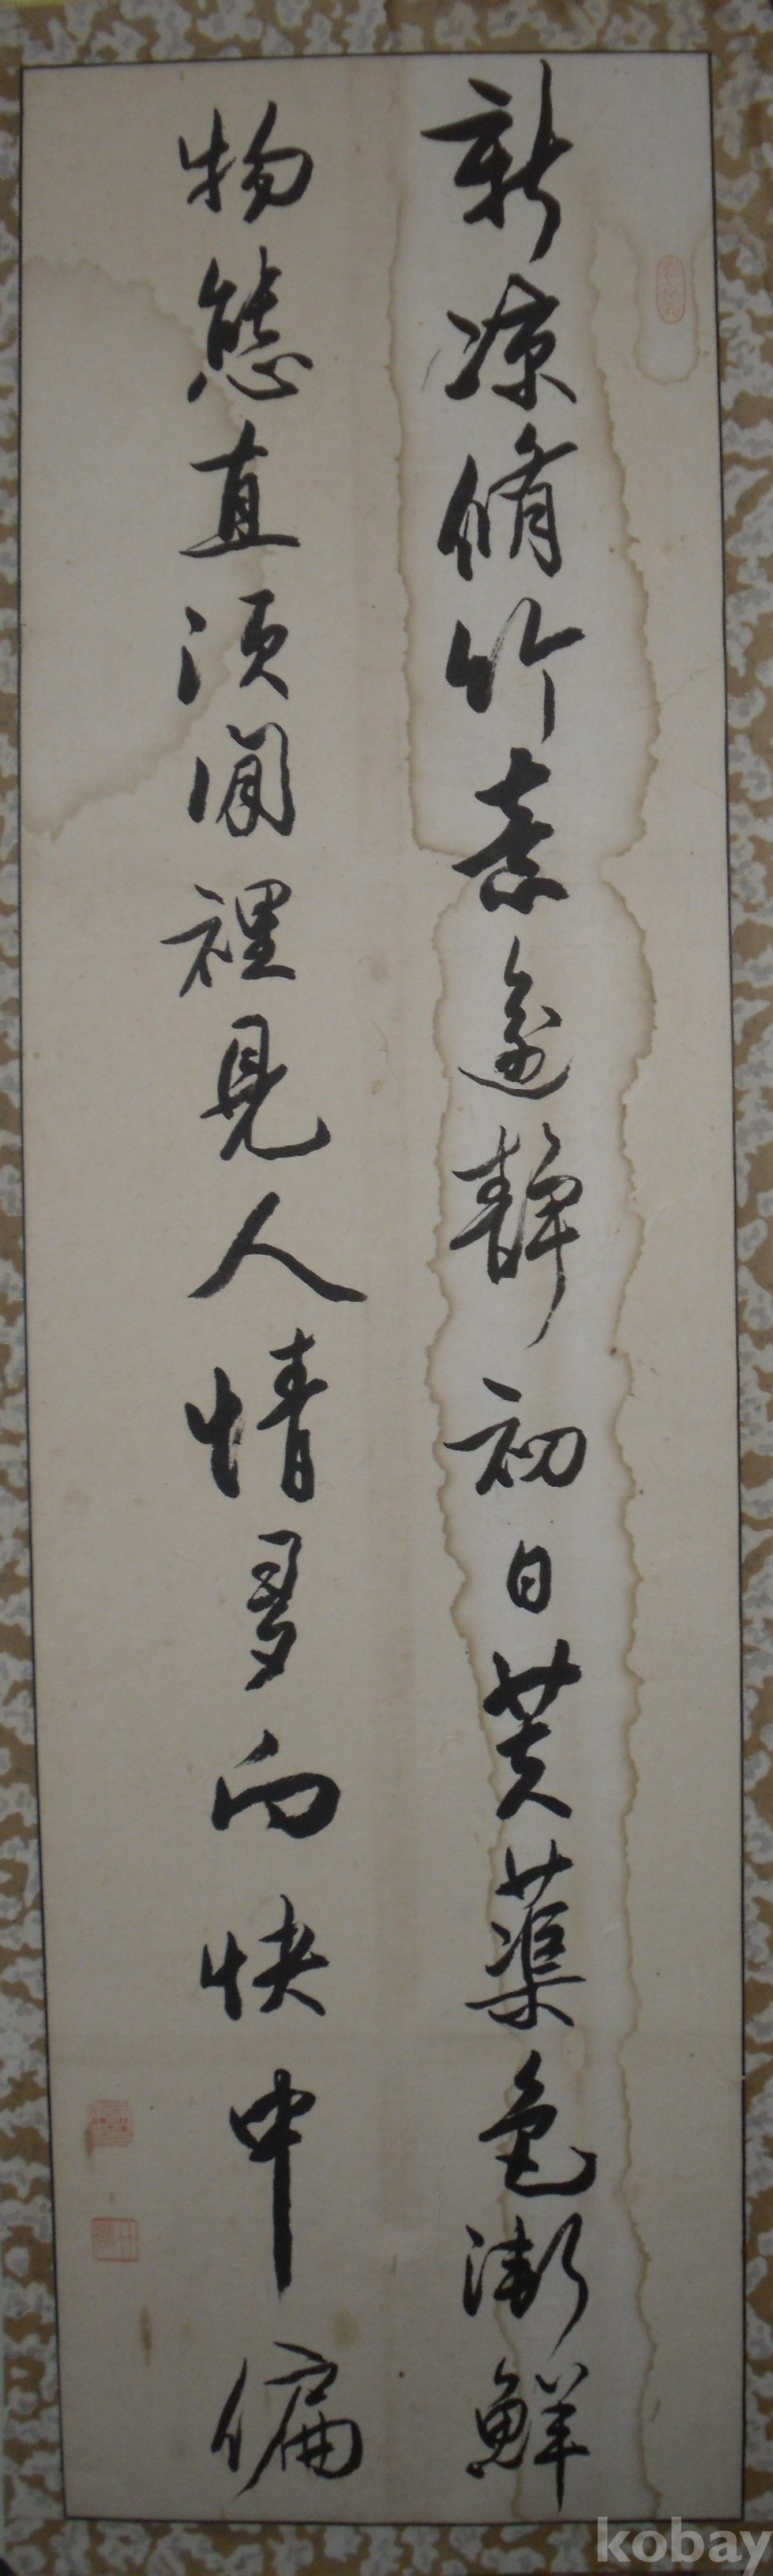 新凉脩竹意逾靜初日芙蕖色漸鮮
物態直須閒裡見人情多向快中偏
kobay